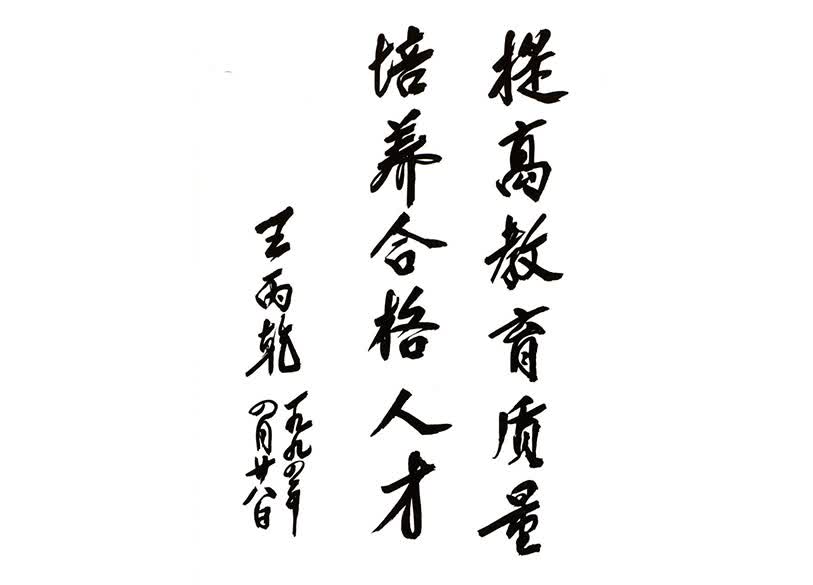 提高教育质量
培养合格人才
王丙乾
一九九四年
四月廿八日